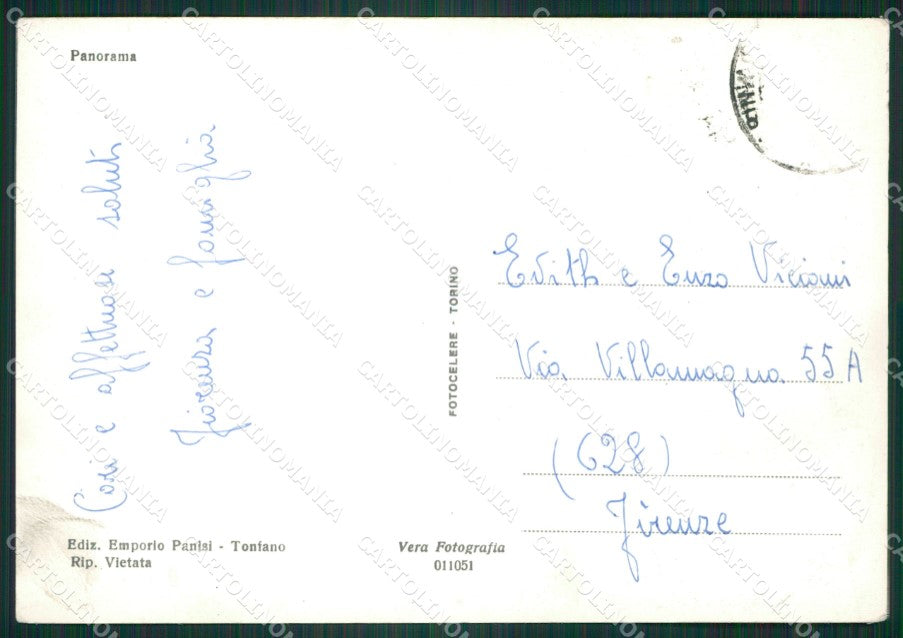 Panorama
Cari e affettuosi saluti
Fiorenza e famiglia
Ediz. Emporio Panisi - Tonfano
Rip. Vietata
Vera Fotografia
011051
FOTOCELERE - TORINO
Edith e Enzo Viciani
Via Villamagna 55 A
(628)
Firenze
CARTOLINOMANIA